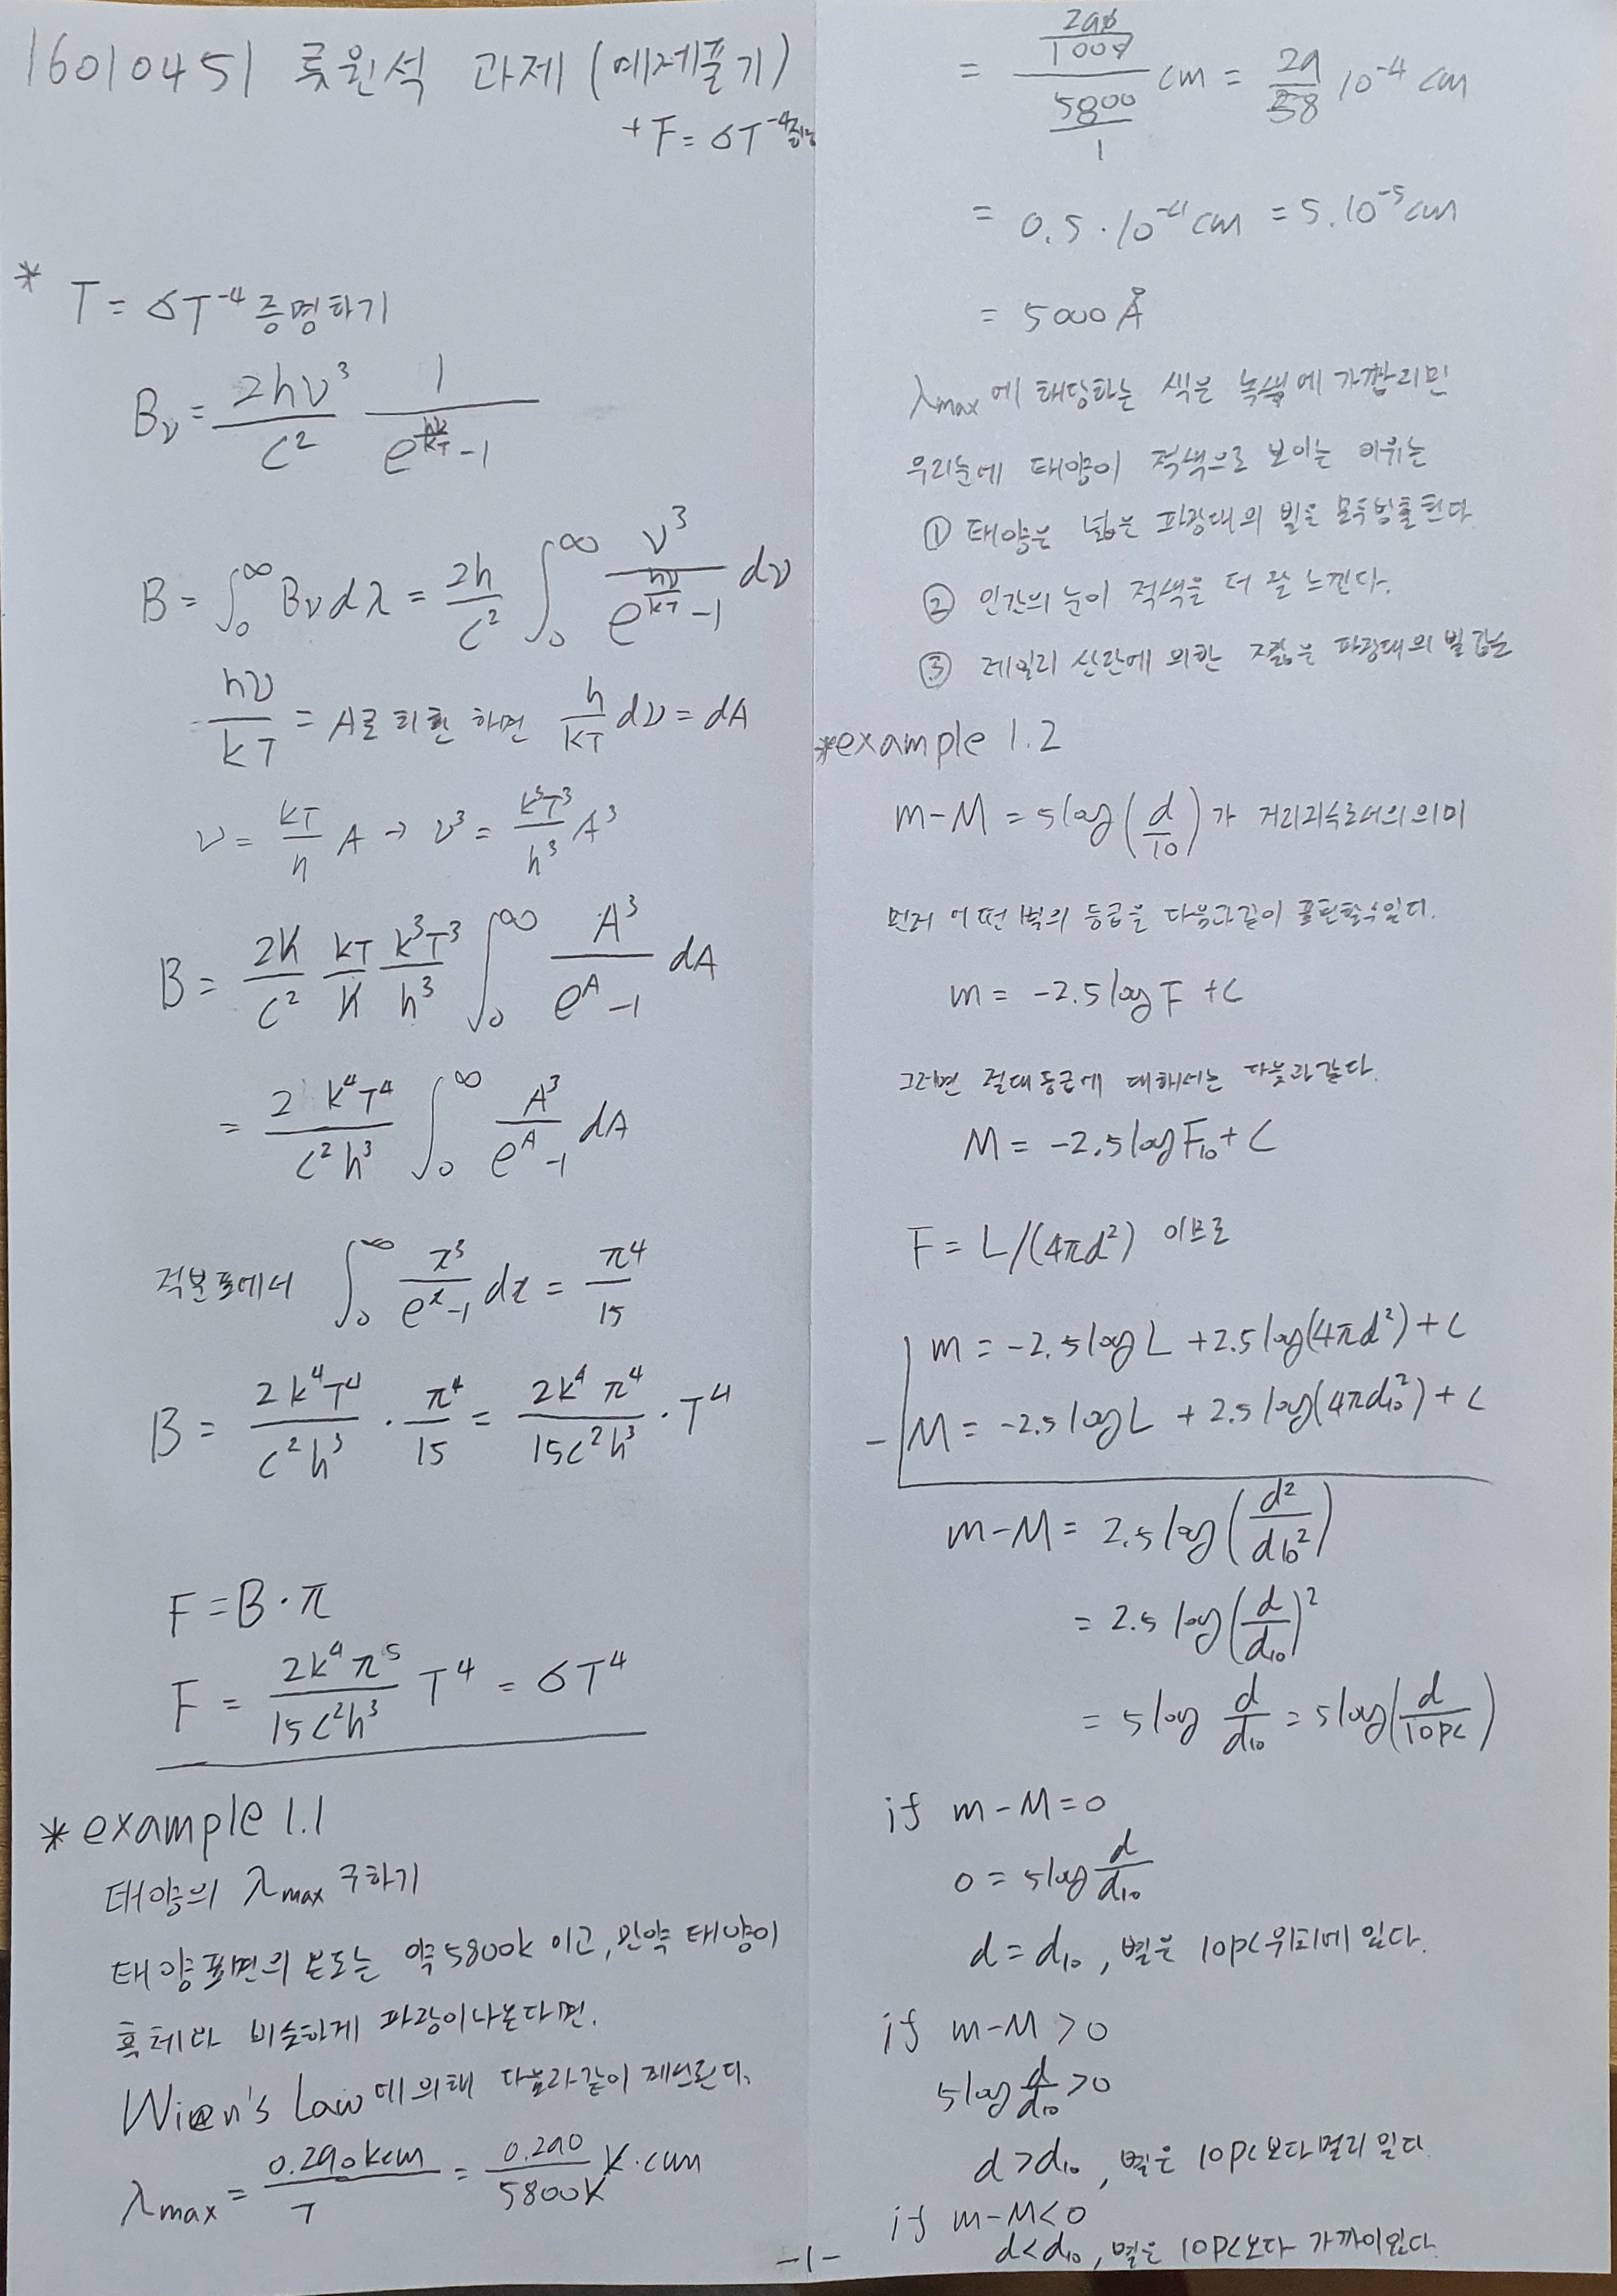 16010451 류원석 과제 (예제풀기)
+ F = σT⁻⁴증명
* T = σT⁻⁴ 증명하기
Bν = 2hν³/c² 1/(e^(hν/kT) - 1)
B = ∫₀^∞ Bν dλ = 2h/c² ∫₀^∞ ν³/(e^(hν/kT) - 1) dν
hν/kT = A로 치환 하면 h/kT dν = dA
ν = kT/h A → ν³ = k³T³/h³ A³
B = 2h/c² kT/h k³T³/h³ ∫₀^∞ A³/(e^A - 1) dA
= 2 k⁴T⁴/c²h³ ∫₀^∞ A³/(e^A - 1) dA
적분표에서 ∫₀^∞ x³/(e^x - 1) dx = π⁴/15
B = 2k⁴T⁴/c²h³ · π⁴/15 = 2k⁴π⁴/15c²h³ · T⁴
F = B · π
F = 2k⁴π⁵/15c²h³ T⁴ = σT⁴
* example 1.1
태양의 λmax 구하기
태양표면의 온도는 약 5800k 이고, 만약 태양이
흑체와 비슷하게 파장이 나온다면.
Wien's Law에 의해 다음과 같이 계산된다.
λmax = 0.290kcm/T = 0.290/5800K K·cm
= (290/1000)/(5800/1) cm = 29/58 10⁻⁴ cm
= 0.5 · 10⁻⁴ cm = 5. 10⁻⁵ cm
= 5000 Å
λmax에 해당하는 색은 녹색에 가깝지만
우리눈에 태양이 적색으로 보이는 이유는
① 태양은 넓은 파장대의 빛을 모두방출한다
② 인간의 눈이 적색을 더 잘 느낀다.
③ 레일리 산란에 의한 짧은 파장대의 빛
* example 1.2
m - M = 5log(d/10) 가 거리지수로서의 의미
먼저 어떤 별의 등급을 다음과 같이 표현할수있다.
m = -2.5 log F + C
그러면 절대등급에 대해서는 다음과 같다.
M = -2.5 log F₁₀ + C
F = L/(4πd²) 이므로
m = -2.5 log L + 2.5 log(4πd²) + C
- M = -2.5 log L + 2.5 log(4πd₁₀²) + C
m - M = 2.5 log(d²/d₁₀²)
= 2.5 log(d/d₁₀)²
= 5 log d/d₁₀ = 5 log(d/10pc)
if m - M = 0
0 = 5 log d/d₁₀
d = d₁₀, 별은 10pc위치에 있다.
if m - M > 0
5 log d/d₁₀ > 0
d > d₁₀, 별은 10pc보다 멀리 있다.
if m - M < 0
d < d₁₀, 별은 10pc보다 가까이있다.
-1-